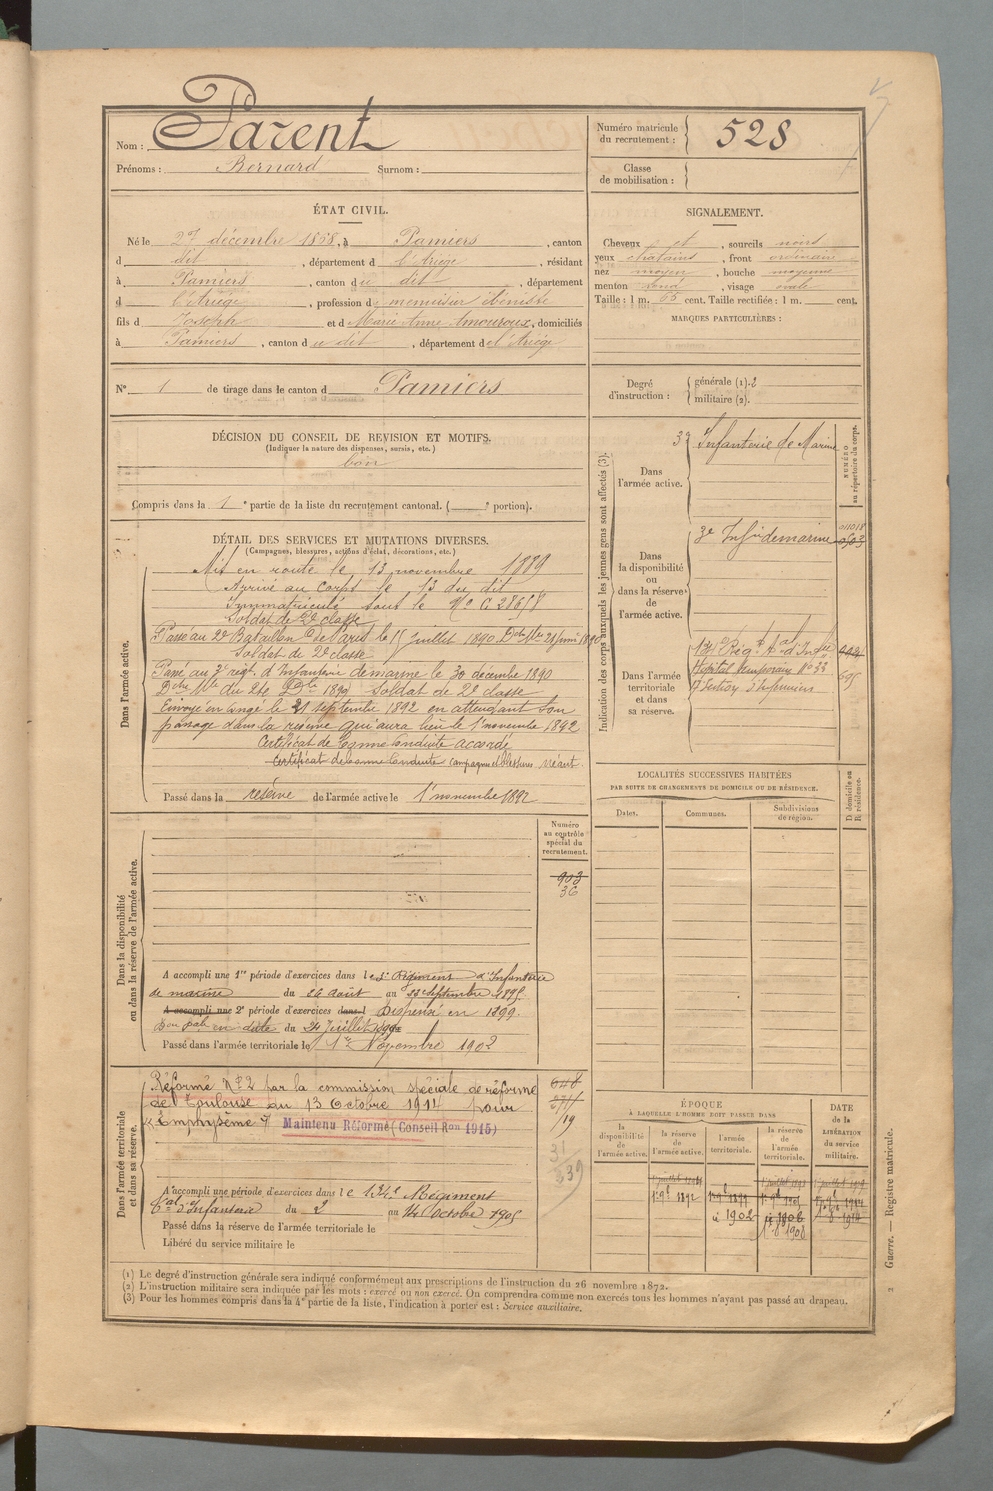 Nom : Parent
Prénoms : Bernard Surnom :
Numéro matricule du recrutement : 528
Classe de mobilisation :
ÉTAT CIVIL.
Né le 27 décembre 1868, à Pamiers, canton
d dit, département d l'Ariège, résidant
à Pamiers, canton du dit, département
d l'Ariège, profession de menuisier ébéniste
fils d Joseph et d Marie Anne Amouroux, domiciliés
à Pamiers, canton du dit, département de l'Ariège
N° 1 de tirage dans le canton d Pamiers
SIGNALEMENT.
Cheveux et, sourcils noirs
yeux chatains, front ordinaire
nez moyen, bouche moyenne
menton rond, visage ovale
Taille : 1 m. 65 cent. Taille rectifiée : 1 m. cent.
MARQUES PARTICULIÈRES :
Degré d'instruction : générale (1). 2
militaire (2).
DÉCISION DU CONSEIL DE REVISION ET MOTIFS.
(Indiquer la nature des dispenses, sursis, etc.)
bon
Compris dans la 1e partie de la liste du recrutement cantonal. ( e portion).
DÉTAIL DES SERVICES ET MUTATIONS DIVERSES.
(Campagnes, blessures, actions d'éclat, décorations, etc.)
Dans l'armée active.
Mis en route le 13 novembre 1889
Arrivé au corps le 13 du dit
Immatriculé sous le No
Soldat de 2e classe
Passé au 2e Bataillon de Paris le 15 juillet 1890
Soldat de 2e classe
Passé au 3e régt d'Infanterie de marine le 30 décembre 1890
Soldat de 2e classe
Envoyé en congé le 21 septembre 1892 en attendant son
passage dans la réserve qui aura lieu le 1er novembre 1892
Certificat de bonne conduite accordé
Certificat de bonne conduite campagnes et blessures néant.
Passé dans la réserve de l'armée active le 1er novembre 1892
Indication des corps auxquels les jeunes gens sont affectés (3).
NUMÉRO au répertoire du corps.
Dans l'armée active.
3e Infanterie de Marine
Dans la disponibilité ou dans la réserve de l'armée active.
3e Infie de marine
Dans l'armée territoriale et dans sa réserve.
Hôpital temporaire No 33
695
LOCALITÉS SUCCESSIVES HABITÉES
PAR SUITE DE CHANGEMENTS DE DOMICILE OU DE RÉSIDENCE.
Dates. Communes. Subdivisions de région. D. domicile ou R. résidence.
Numéro au contrôle spécial du recrutement.
903
36
Dans la disponibilité ou dans la réserve de l'armée active.
A accompli une 1re période d'exercices dans le 3e Régiment d'Infanterie
de marine du 26 août au 22 septembre 1895.
A accompli une 2e période d'exercices dans l Dispensé en 1899.
en date du 24 Juillet 1899
Passé dans l'armée territoriale le 1er Novembre 1902
Dans l'armée territoriale et dans sa réserve.
Réformé No 2 par la commission spéciale de réforme
de Toulouse du 13 Octobre 1914 pour
« Emphysème » Maintenu Réformé (Conseil Ron 1915)
A accompli une période d'exercices dans le 134e Régiment
tal d'Infanterie du 2 au 14 Octobre 1905
Passé dans la réserve de l'armée territoriale le
Libéré du service militaire le
ÉPOQUE
À LAQUELLE L'HOMME DOIT PASSER DANS
la disponibilité de l'armée active.
la réserve de l'armée active.
l'armée territoriale.
la réserve de l'armée territoriale.
DATE de la LIBÉRATION du service militaire.
1902
1908
Guerre. — Registre matricule.
(1) Le degré d'instruction générale sera indiqué conformément aux prescriptions de l'instruction du 26 novembre 1872.
(2) L'instruction militaire sera indiquée par les mots : exercé ou non exercé. On comprendra comme non exercés tous les hommes n'ayant pas passé au drapeau.
(3) Pour les hommes compris dans la 4e partie de la liste, l'indication à porter est : Service auxiliaire.